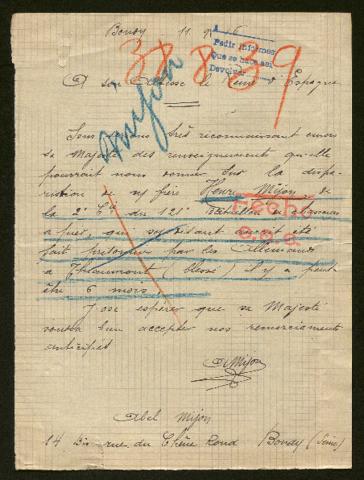 Bondy 11. 9. 16
Pedir informes
que se hace así
Devolver
38839
Mijon
A son Altesse le Roi d'Espagne
Sous serions très reconnaissant envers
sa Majesté des renseignements qu'elle
pourrait nous donner sur la dispa-
rution de mon frère Henri Mijon de
la 2e Cie du 121e Bataillon de chasseurs
à pied, qui soi disant aurait été
fait prisonnier par les Allemands
à Thiaumont (blessé) il y a peut
être 6 mois
Fecho
c.o.a.
J'ose espérer que sa Majesté
voudra bien accepter nos remerciements
anticipés
A Mijon
Abel Mijon
14 bis rue du Chêne Rond Bondy (Seine)